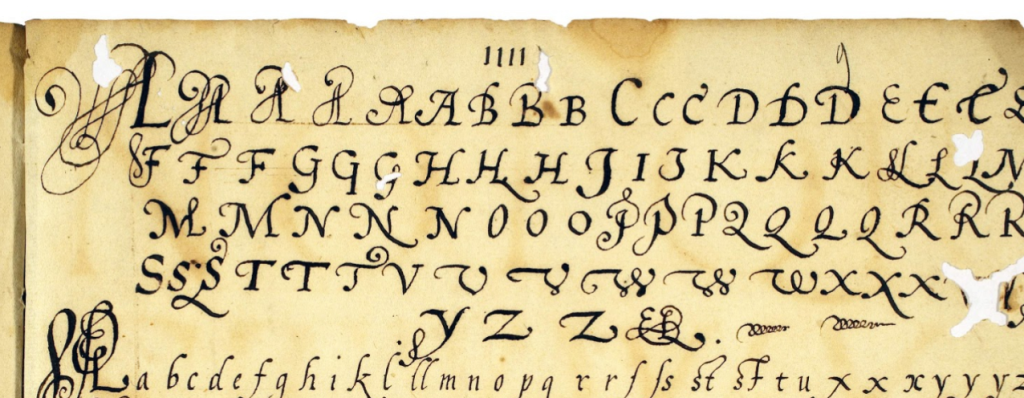 1111
A A A A A A B B B C C C D D D E E E
F F F G G G H H H J I J K K K L L L M
M M N N N O O O P P P Q Q Q R R R
S S S T T T V V V W W W X X X
Y Z Z &.
a b c d e f g h i k l ll m n o p q r r ſ ſs st st t u x x x y y y z